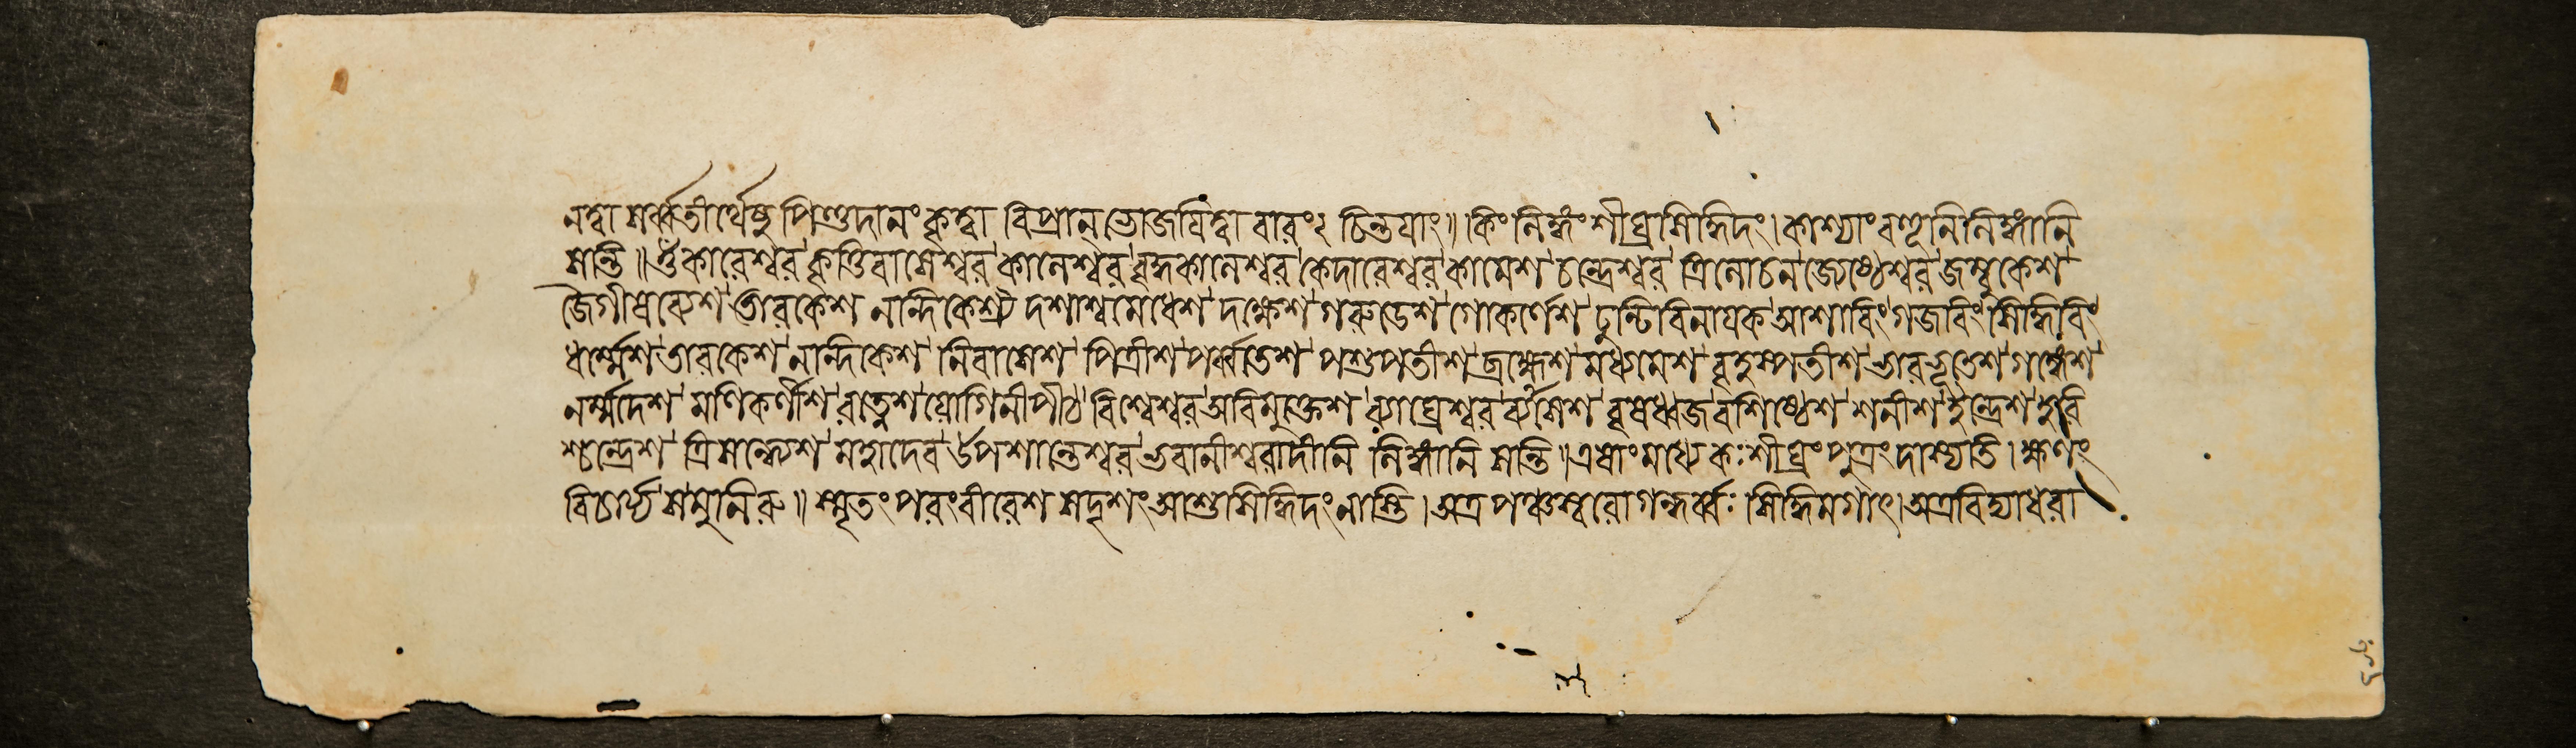 নত্বা সর্ব্বতীর্থেষু পিণ্ডদানং কৃত্বা বিপ্রান্ ভোজযিত্বা বারং২ চিন্তযাং॥ কিং লিঙ্গং শীঘ্রসিদ্ধিদং। কাশ্যাং বহূনি লিঙ্গানি
সন্তি॥ ওঁকারেশ্বর কৃত্তিবাসেশ্বর কালেশ্বর বৃদ্ধকালেশ্বর কেদারেশ্বর কামেশ চন্দ্রেশ্বর ত্রিলোচন জ্যেষ্ঠেশ্বর জম্বুকেশ
জৈগীষব্যেশ তারকেশ দশাশ্বমেধেশ দক্ষেশ গরুডেশ গোকর্ণেশ ঢুন্টিবিনাযক আশাবিং গজবিং সিদ্ধিবিং
ধর্ম্মেশ তারকেশ নন্দিকেশ নিবাসেশ পিত্রীশ পর্ব্বতেশ পশুপতীশ ব্রহ্মেশ মধ্যমেশ বৃহস্পতীশ ভারভূতেশ গঙ্গেশ
নর্ম্মদেশ মণিকর্ণীশ রত্নেশ যোগিনীপীঠ বিশ্বেশ্বর অবিমুক্তেশ ব্যাঘ্রেশ্বর ব্যাসেশ বৃষধ্বজ বশিষ্ঠেশ শনীশ
শ্চন্দ্রেশ ত্রিসন্ধ্যেশ মহাদেব উপশান্তেশ্বর ভবানীশ্বরাদীনি লিঙ্গানি সন্তি॥ এষাং মধ্যে কঃ শীঘ্রং পুত্রং দাস্যতি। ক্ষণং
বিচার্য্য স মুনিরু॥ স্মৃতং পরং বীরেশ সদৃশং আশুসিদ্ধিদং নাস্তি। অত্র পঞ্চস্বরো গন্ধর্ব্বঃ সিদ্ধিমগাৎ। অত্র বিদ্যাধরা